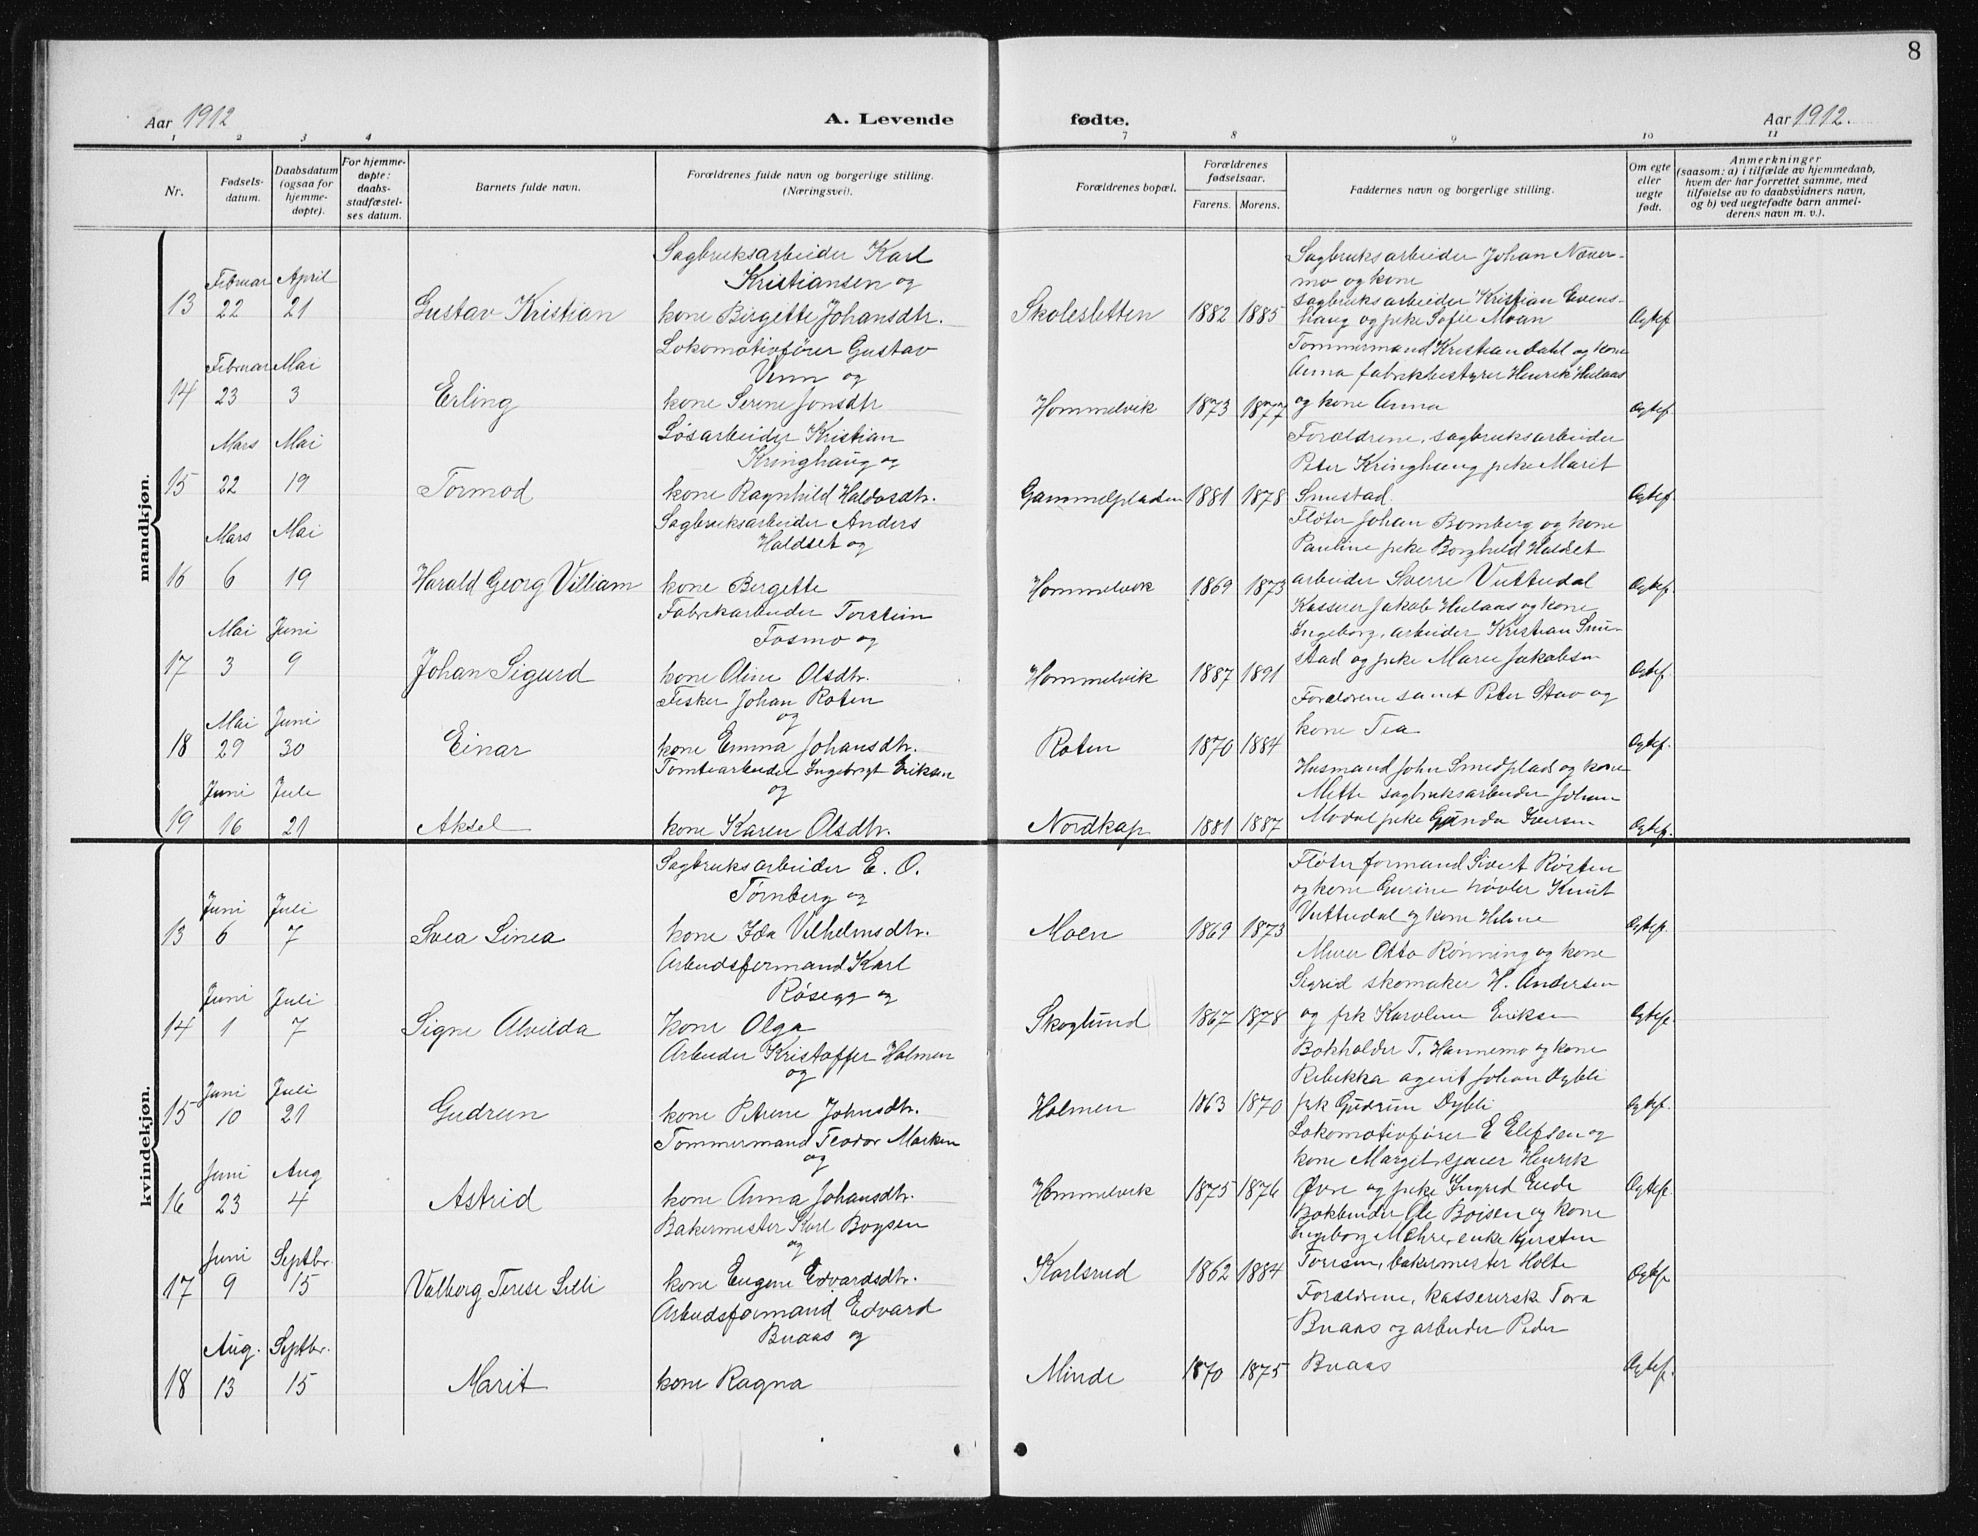 8
Aar 1912 A. Levende fødte. Aar 1912.
1 2 3 4 7 8 9 10 11
Nr. Fødsels-datum. Daabsdatum (ogsaa for hjemme-døpte). For hjemme-døpte: daabs-stadfæstel-ses datum. Barnets fulde navn. Forældrenes fulde navn og borgerlige stilling. (Næringsvei). Forældrenes bopæl. Forældrenes fødselsaar. Farens. Morens. Faddernes navn og borgerlige stilling. Om egte eller uegte født. Anmerkninger (saasom: a) i tilfælde av hjemmedaab, hvem der har forrettet samme, med tilføielse av to daabsvidners navn, og b) ved uegtefødte barn anmel-derens navn m. v.).
mandkjøn.
Sagbruksarbeider Karl Sagbruksarbeider Johan Næver-
Februar April Kristiansen og mo og kone
sagbruksarbeider Kristian Evens-
13 22 21 Gustav Kristian kone Birgitte Johansdtr. Skolesletten 1882 1885 haug og pike Sofie Moan Egtef.
Lokomotivfører Gustav Tømmermand Kristian Dahl og kone
Februar Mai Venn og Anna fabrikbestyrer Henrik Hulaas
14 23 3 Erling kone Serene Jonsdtr Hommelvik 1873 1877 og kone Anna Egtef.
Mars Mai Løsarbeider Kristian Forældrene, sagbruksarbeider
Kringhaug og Peter Kringhaug pike Marit
15 22 19 Tormod kone Ragnhild Haldosdtr. Gammelpladsen 1881 1878 Smestad. Egtef.
Mars Mai Sagbruksarbeider Anders Fløter Johan Bomberg og kone
Haldset og Pauline pike Borghild Haldset
16 6 19 Harald Georg Villiam kone Bergitte Hommelvik 1869 1873 arbeider Sverre Vuttudal Egtef.
Fabrikarbeider Torstein Kasserer Jakob Hulaas og kone
Mai Juni Fosmo og Ingeborg, arbeider Kristian Smu-
17 3 9 Johan Sigurd kone Oline Olsdtr. Hommelvik 1887 1891 stad og pike Marie Jakobsen Egtef.
Mai Juni Fisker Johan Roten og Forældrene samt Peter Stav og
18 29 30 Einar kone Emma Johansdtr. Roten 1870 1884 kone Tea Egtef.
Juni Juli Tomtearbeider Ingebrigt Eriksen og Husmand John Smedplads og kone
Mette sagbruksarbeider Johan
19 16 21 Aksel kone Karen Olsdtr. Nordkap 1881 1887 Modal pike Gunda Iversen Egtef.
kvindekjøn.
Sagbruksarbeider E. O. Fløterformand Sivert Røsten
Juni Juli Tørnberg og og kone Gurine høvler Knut
13 6 7 Svea Linea kone Ida Vilhelmsdtr. Moen 1869 1873 Vuttudal og kone Helene Egtef.
Arbeidsformand Karl Murer Otto Rønning og kone
Juni Juli Røsegg og Sigrid skomaker H. Andersen
14 1 7 Signe Alvilda kone Olga Skoglund 1867 1878 og frk Karoline Eriksen Egtef.
Arbeider Kristoffer Holmen og Bokholder T. Hannemo og kone
Juni Juli Rebekka agent Johan Dybli
15 10 21 Gudrun kone Petrene Johnsdtr. Holmen 1863 1870 frk Gudrun Dybli Egtef.
Tømmermand Teodor Marken og Lokomotivfører E Elefsen og
Juni Aug kone Marget, eier Henrik
16 23 4 Astrid kone Anna Johansdtr. Hommelvik 1875 1876 Øvre og pike Ingrid Eide Egtef.
Bakermester Karl Boysen og Bokbinder Ole Boisen og kone
Juni Septbr. Ingeborg Mehre, enke Kjersten
17 9 15 Valborg Terese Lilli kone Eugene Edvardsdtr. Karlsrud 1862 1884 Toresen, bakermester Holte Egtef.
Arbeidsformand Edvard Forældrene, kassererske Tora
Aug. Septbr. Buaas og Buaas og arbeider Peder
18 13 15 Marit kone Ragna Minde 1870 1875 Buaas Egtef.